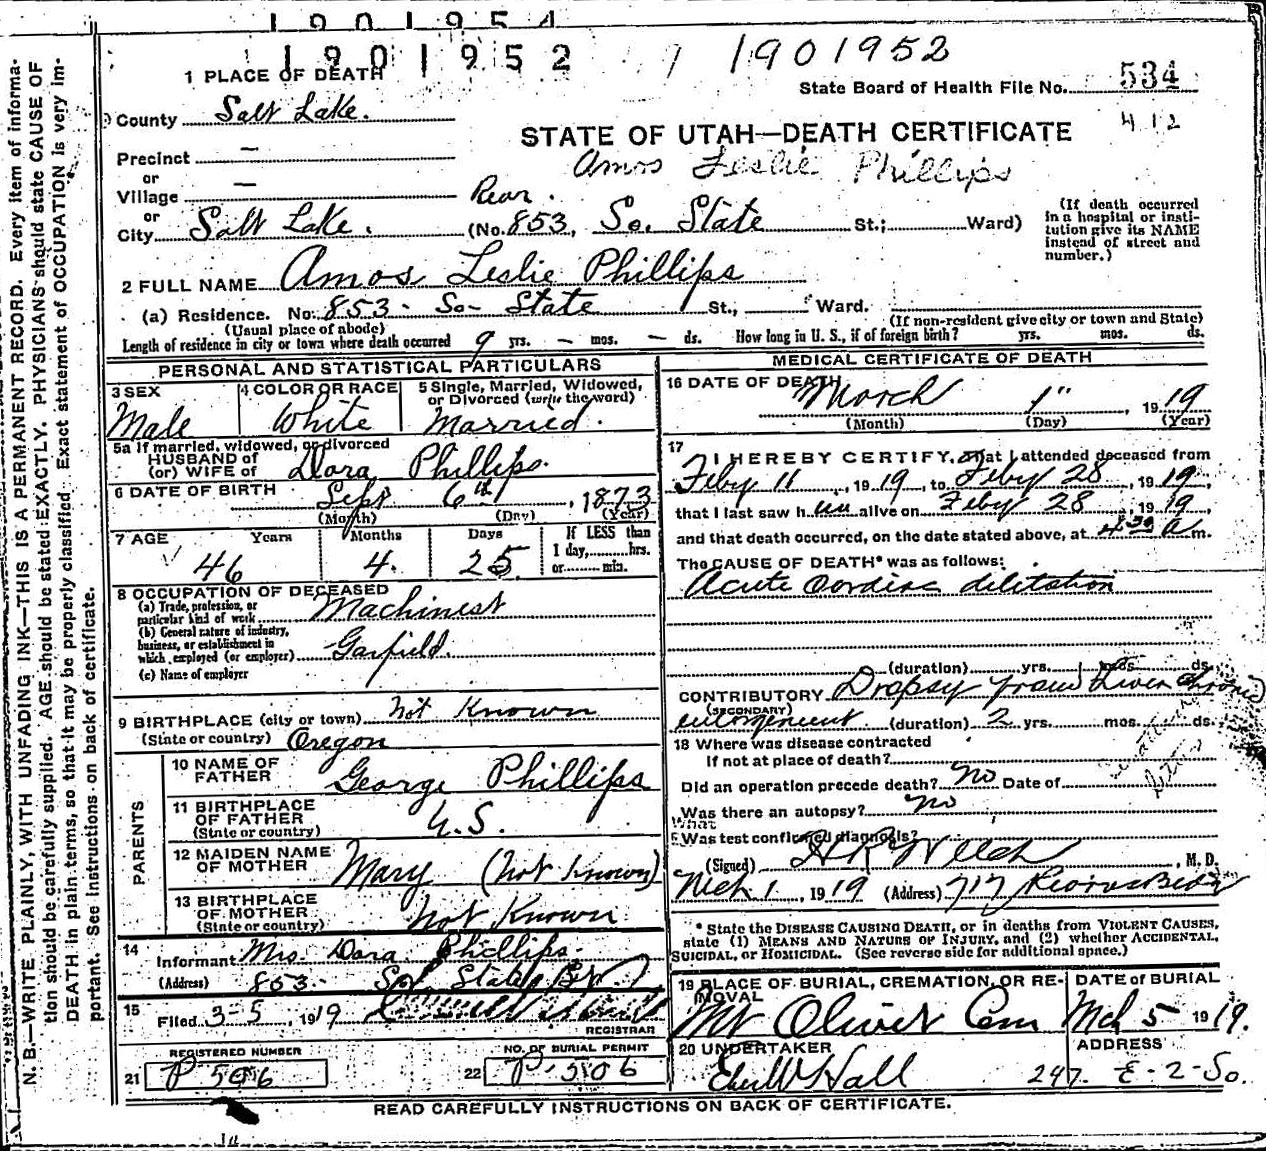 1901954
1901952 / 1901952
1 PLACE OF DEATH
State Board of Health File No. 534
412
County Salt Lake.
STATE OF UTAH—DEATH CERTIFICATE
Amos Leslie Phillips
Precinct —
or
Village —
or
Rear.
City Salt Lake. (No. 853, So. State St.; Ward)
(If death occurred in a hospital or institution give its NAME instead of street and number.)
2 FULL NAME Amos Leslie Phillips
(a) Residence. No. 853 - So - State St., Ward.
(Usual place of abode) (If non-resident give city or town and State)
Length of residence in city or town where death occurred 9 yrs. — mos. — ds. How long in U. S., if of foreign birth? yrs. mos. ds.
PERSONAL AND STATISTICAL PARTICULARS
3 SEX Male
4 COLOR OR RACE White
5 Single, Married, Widowed, or Divorced (write the word) Married.
5a If married, widowed, or divorced
HUSBAND of
(or) WIFE of Dora Phillips.
6 DATE OF BIRTH Sept 6th, 1873
(Month) (Day) (Year)
7 AGE Years Months Days If LESS than
1 day, hrs.
or min.
46 4. 25
8 OCCUPATION OF DECEASED
(a) Trade, profession, or particular kind of work Machinest
(b) General nature of industry, business, or establishment in which employed (or employer) Garfield.
(c) Name of employer
9 BIRTHPLACE (city or town) Not Known
(State or country) Oregon
PARENTS
10 NAME OF FATHER George Phillips
11 BIRTHPLACE OF FATHER (State or country) U.S.
12 MAIDEN NAME OF MOTHER Mary (Not Known)
13 BIRTHPLACE OF MOTHER (State or country) Not Known
14 Informant Mrs. Dora Phillips.
(Address) 853 So. State
15 Filed 3-5, 1919
REGISTRAR
REGISTERED NUMBER
21 P 506
NO. OF BURIAL PERMIT
22 P-506
MEDICAL CERTIFICATE OF DEATH
16 DATE OF DEATH March 1", 1919
(Month) (Day) (Year)
17 I HEREBY CERTIFY, That I attended deceased from
Feby 11, 1919, to Feby 28, 1919,
that I last saw h im alive on Feby 28, 1919,
and that death occurred, on the date stated above, at 4 30 a m.
The CAUSE OF DEATH* was as follows:
Acute Cordiac dilitation
(duration) yrs. mos. ds.
CONTRIBUTORY Dropsy from Liver chronic
(SECONDARY)
enlorgement (duration) 2 yrs. mos. ds.
18 Where was disease contracted
If not at place of death?
Did an operation precede death? No Date of
Was there an autopsy? No
What
Was test confirmed diagnosis?
(Signed) H P Welch, M. D.
Mch 1, 1919 (Address) 717
* State the DISEASE CAUSING DEATH, or in deaths from VIOLENT CAUSES, state (1) MEANS AND NATURE OF INJURY, and (2) whether ACCIDENTAL, SUICIDAL, or HOMICIDAL. (See reverse side for additional space.)
19 PLACE OF BURIAL, CREMATION, OR REMOVAL
Mt Olivet Cem
DATE of BURIAL
Mch 5 1919.
20 UNDERTAKER
Hall
ADDRESS
247. E - 2 - So.
READ CAREFULLY INSTRUCTIONS ON BACK OF CERTIFICATE.
N. B.—WRITE PLAINLY, WITH UNFADING INK—THIS IS A PERMANENT RECORD. Every item of information should be carefully supplied. AGE should be stated EXACTLY. PHYSICIANS should state CAUSE OF DEATH in plain terms, so that it may be properly classified. Exact statement of OCCUPATION is very important. See instructions on back of certificate.